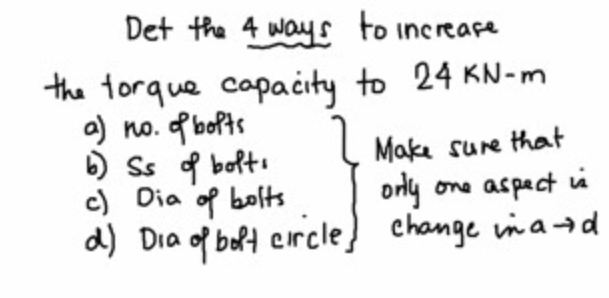 Det the 4 ways to increase
the torque capacity to 24 KN-m
a) no. of bolts
b) Ss of bolts
c) Dia of bolts
d) Dia of bolt circle
Make sure that
only one aspect is
change in a → d